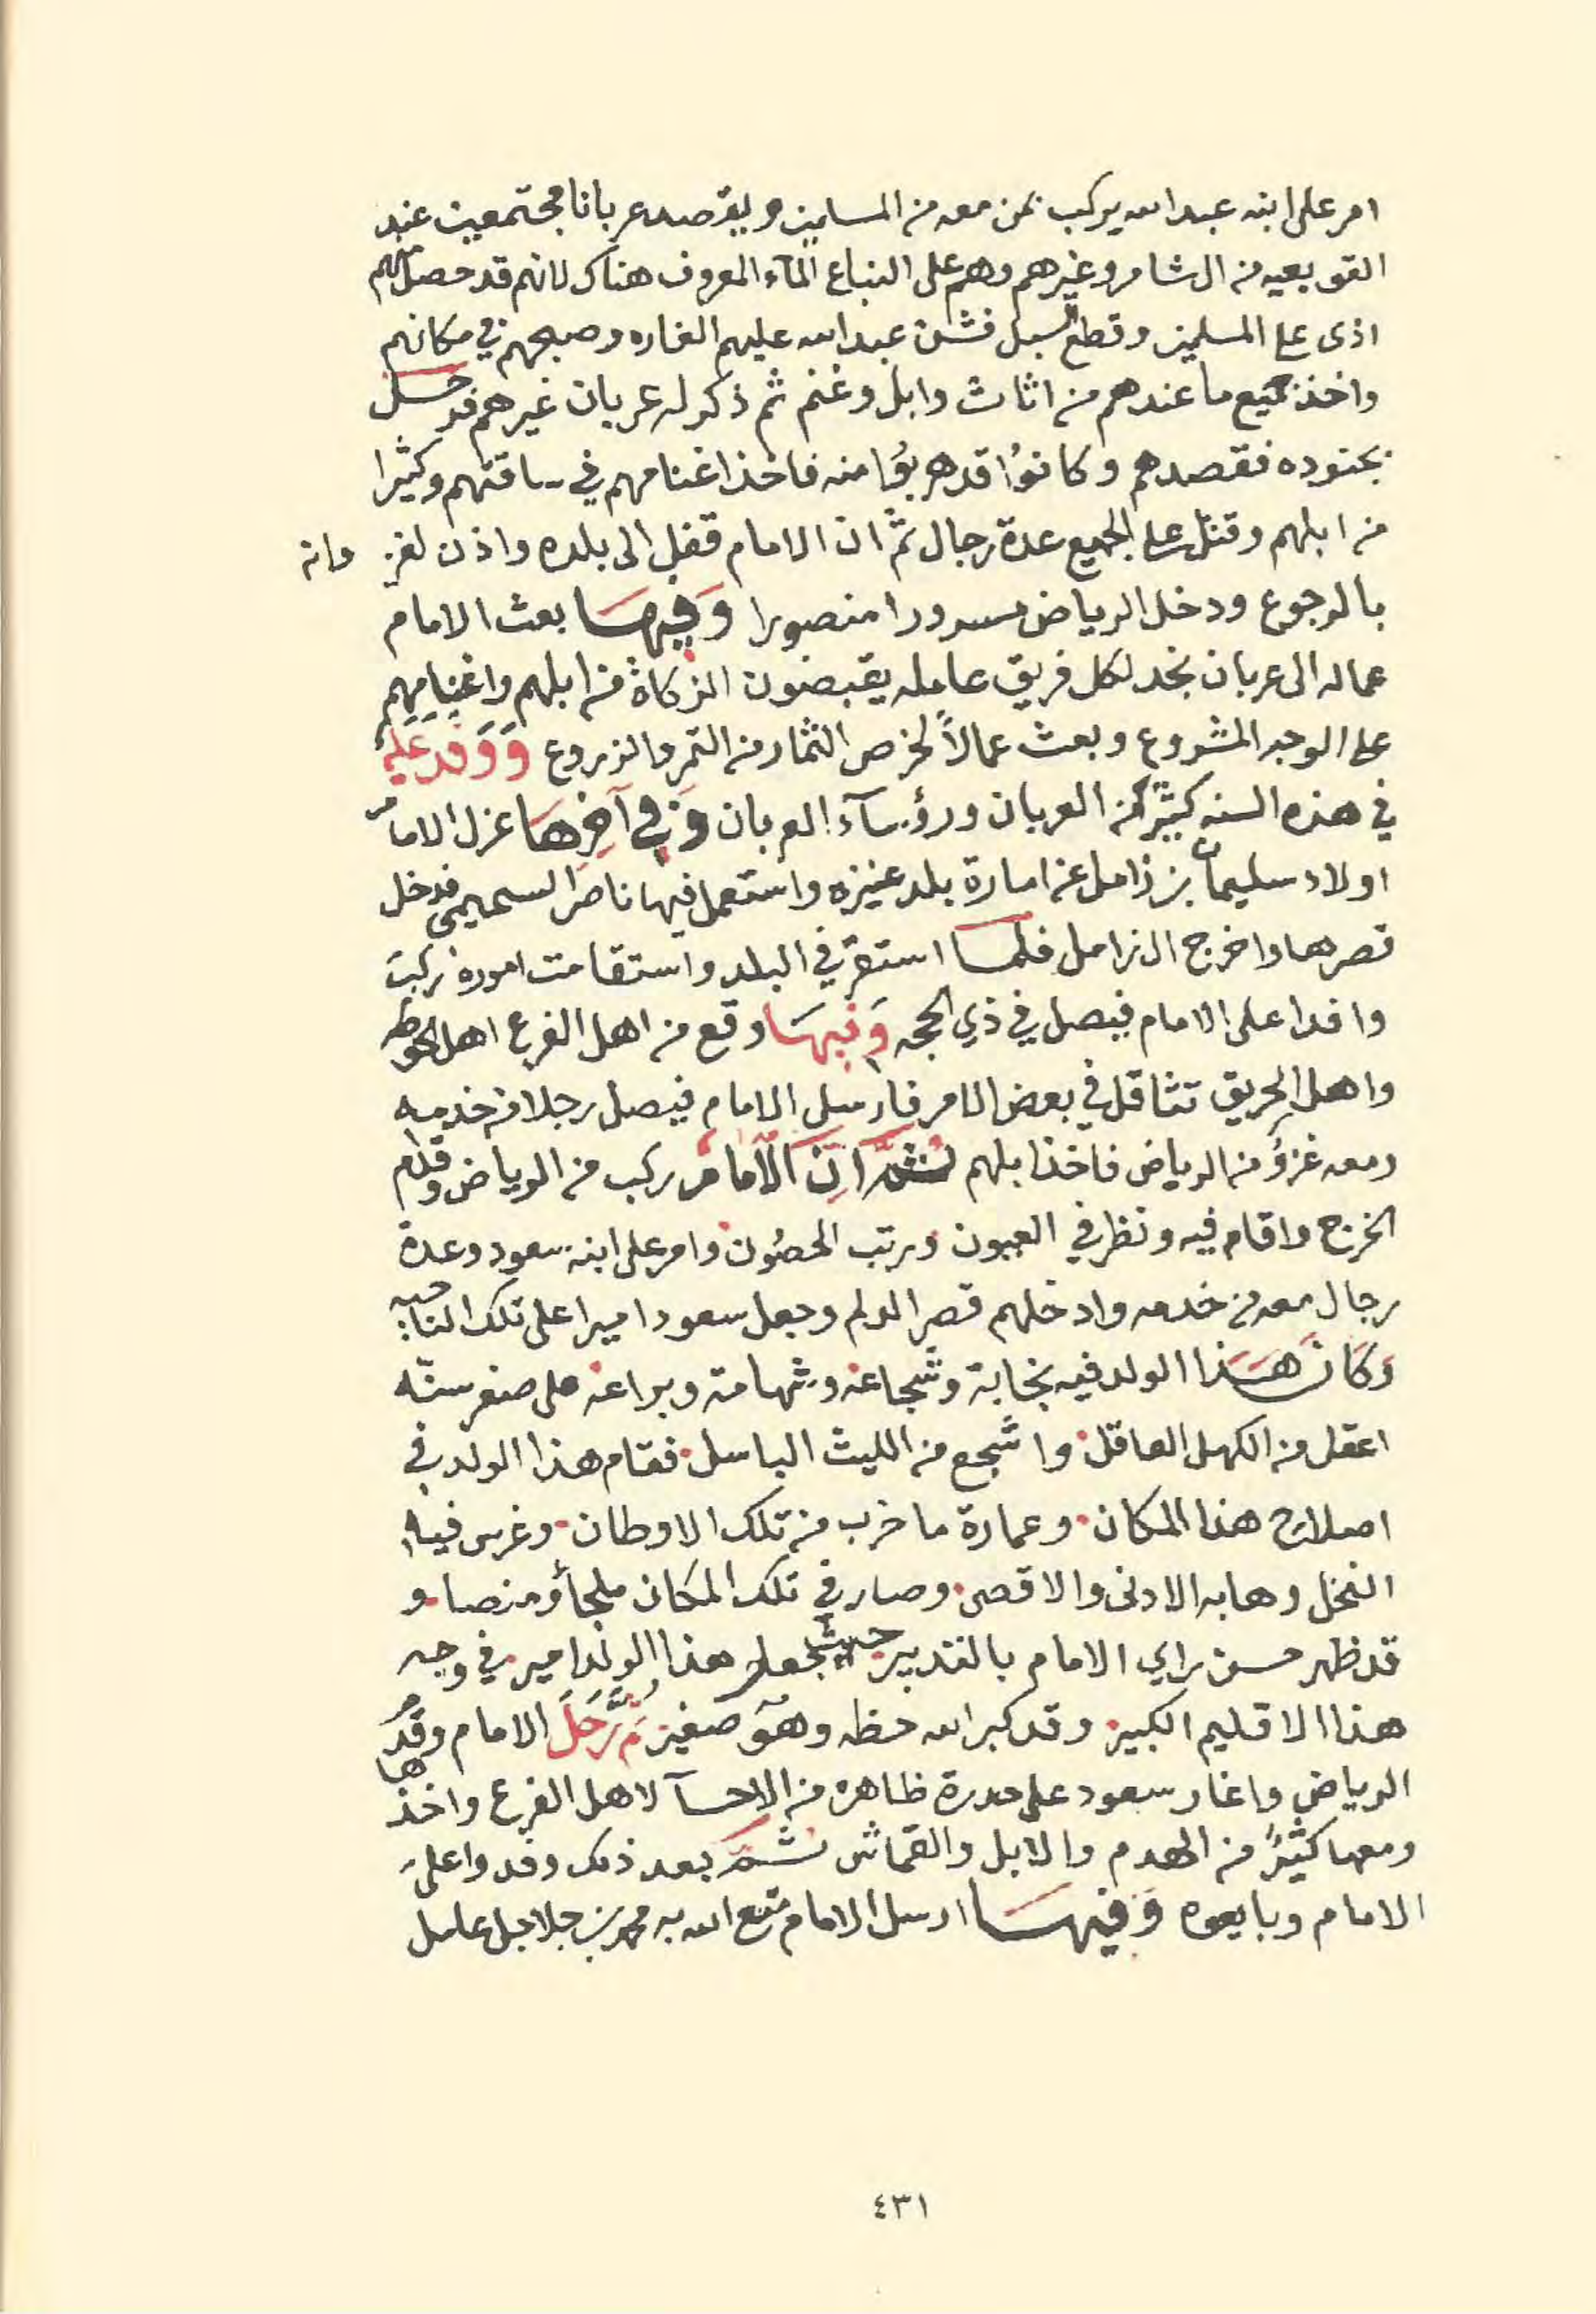 امر على ابنه عبد الله يركب بمن معه من المسلمين ويقصد عربانا مجتمعين عند
القويعيه من ال شامر وغيرهم وهم على النباع المآء المعروف هناك لانهم قد حصل لهم
اذى على المسلمين وقطع السبل فشن عبد الله عليهم الغاره وصبحهم في مكانهم
واخذ جميع ما عندهم من اثاث وابل وغنم ثم ذكر له عربان غيرهم فرحل
بجنوده فقصدهم وكانوُا قد هربوُا منه فاخذ اغنامهم في ساقتهم وكثيرا
من ابلهم وقتل على الجميع عدة رجال ثمّ ان الامام قفل الى بلده واذن لغزوانه
بالرجوع ودخل الرياض مسرورا منصورا وَفيهَا بعث الامام
عماله الى عربان نجد لكل فريق عامله يقبضون الزكاة من ابلهم واغنامهم
على الوجه المشروع وبعث عمالاً لخرص الثمار من التمر والزروع وَوَفَدَ عَلَيْه
في هذه السنه كثيرٌ من العربان ورؤسآء العربان وَفي آخِرِهَا عزل الامام
اولاد سليمان بن زامل عن امارة بلد عنيزه واستعمل فيها ناصر السحيمي فدخل
قصرها واخرج ال زامل فلمَّا استقرّ في البلد واستقامت اموره ركب
وافدا على الامام فيصل في ذي الحجه وَفيهَا وقع من اهل الفرع اهل الحوطه
واهل الحريق تثاقل في بعض الامر فارسل الامام فيصل رجلا من خدمه
ومعه غزوُ من الرياض فاخذ ابلهم ثمَّ انّ الاَمامَ ركب من الرياض وقدم
الخرج واقام فيه ونظر في العيون ورتب الحصُون وامر على ابنه سعود وعدة
رجال معه من خدمه وادخلهم قصر الدلم وجعل سعودا ميرا على تلك الناحيه
وَكَانَ هَذا الولد فيه نجابة وشجاعة وشهامة وبراعه على صغر سنّه
اعقل من الكهل العاقل واشجع من الليث الباسل فقام هذا الولد في
اصلاح هذا المكان وعمارة ما خرب من تلك الاوطان وغرس فيه
النخل وهابه الادنى والاقصى وصار في تلك المكان ملجأ ومنصا و
قد ظهر حسن راي الامام بالتدبير حيث جعل هذا الولد امير في وجه
هذا الاقليم الكبير وقد كبر الله حظه وهوَ صغير ثُمَّ رَحَلَ الامام وقدم
الرياض واغار سعود على حدرة ظاهره من الاحسآ لاهل الفرع واخذها
ومعها كثيرٌ من الهدم والابل والقماش ثمَّ بعد ذلك وفدوا على
الامام وبايعوه وَفيهَا ارسل الامام متع الله به محمد بن جلاجل عامل
٤٣١